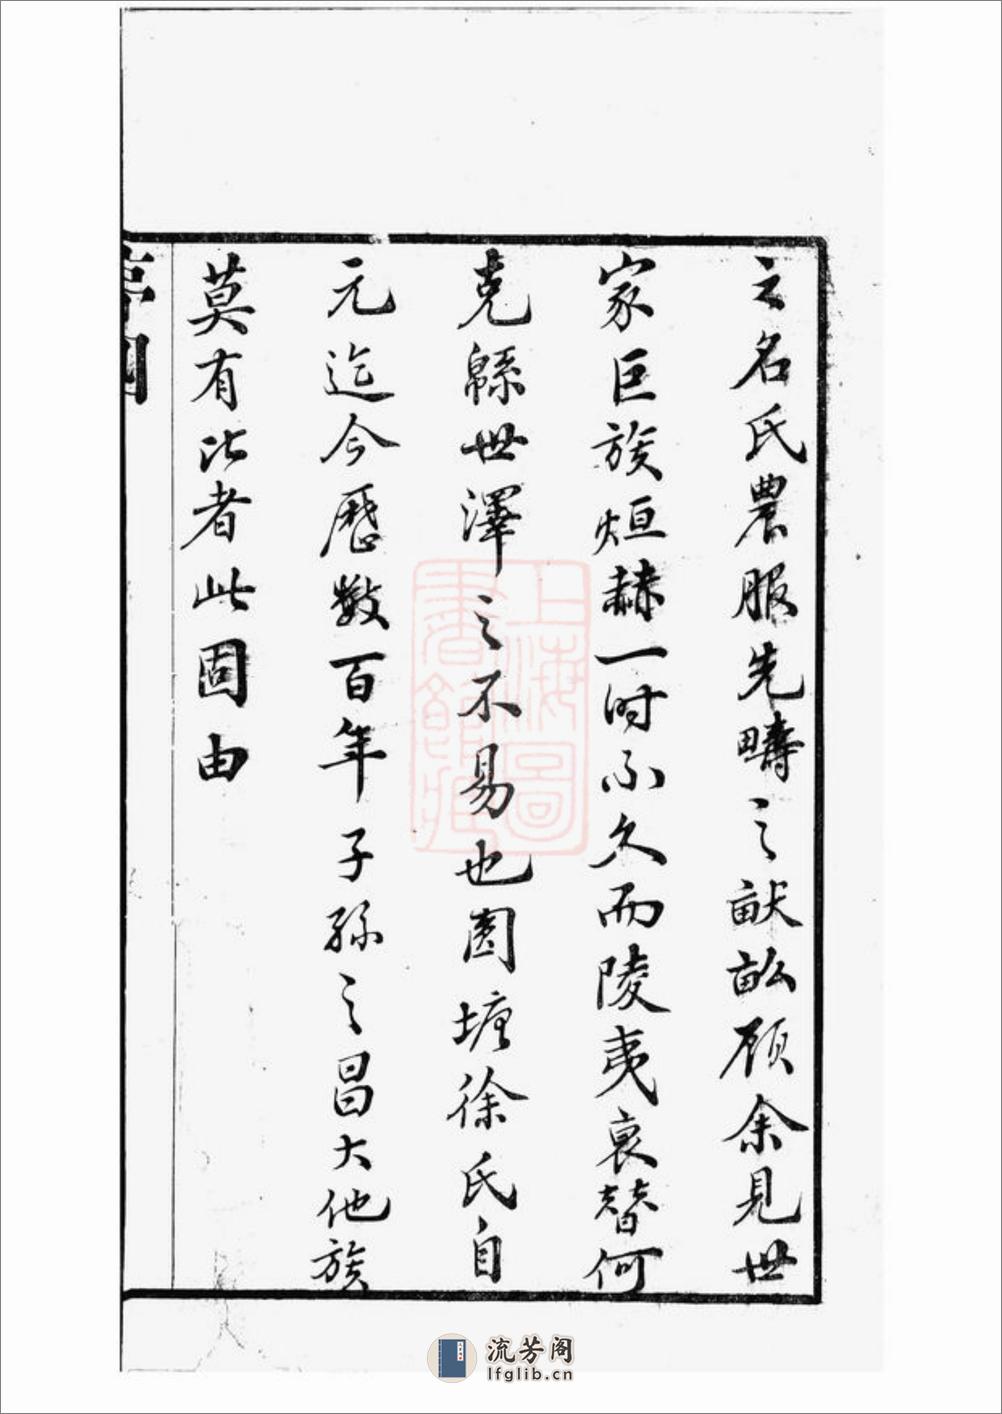 之名氏農服先疇之畎畝顧余見世
家巨族烜赫一时不久而陵夷衰替何
克緜世澤之不易也圊塘徐氏自
元迄今歷數百年子孫之昌大他族
莫有比者此固由
上海圖
書館藏
流芳阁
lfglib.cn